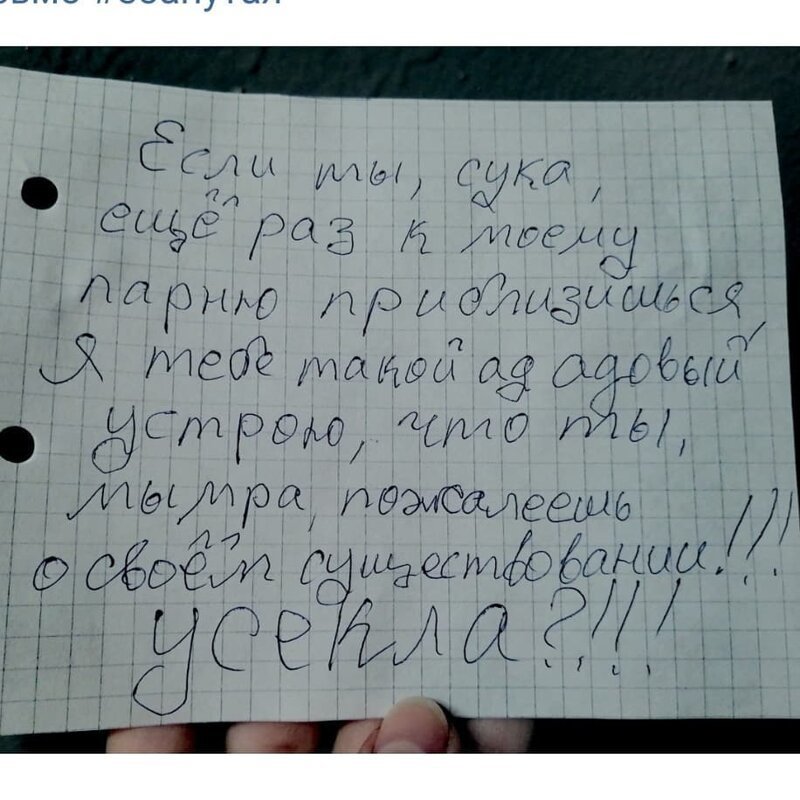 Если ты, сука,
ещё раз к моему
парню приблизишься,
Я тебе такой ад адовый
устрою, что ты,
мымра, пожалеешь
о своём существовании!!!
усекла?!!!